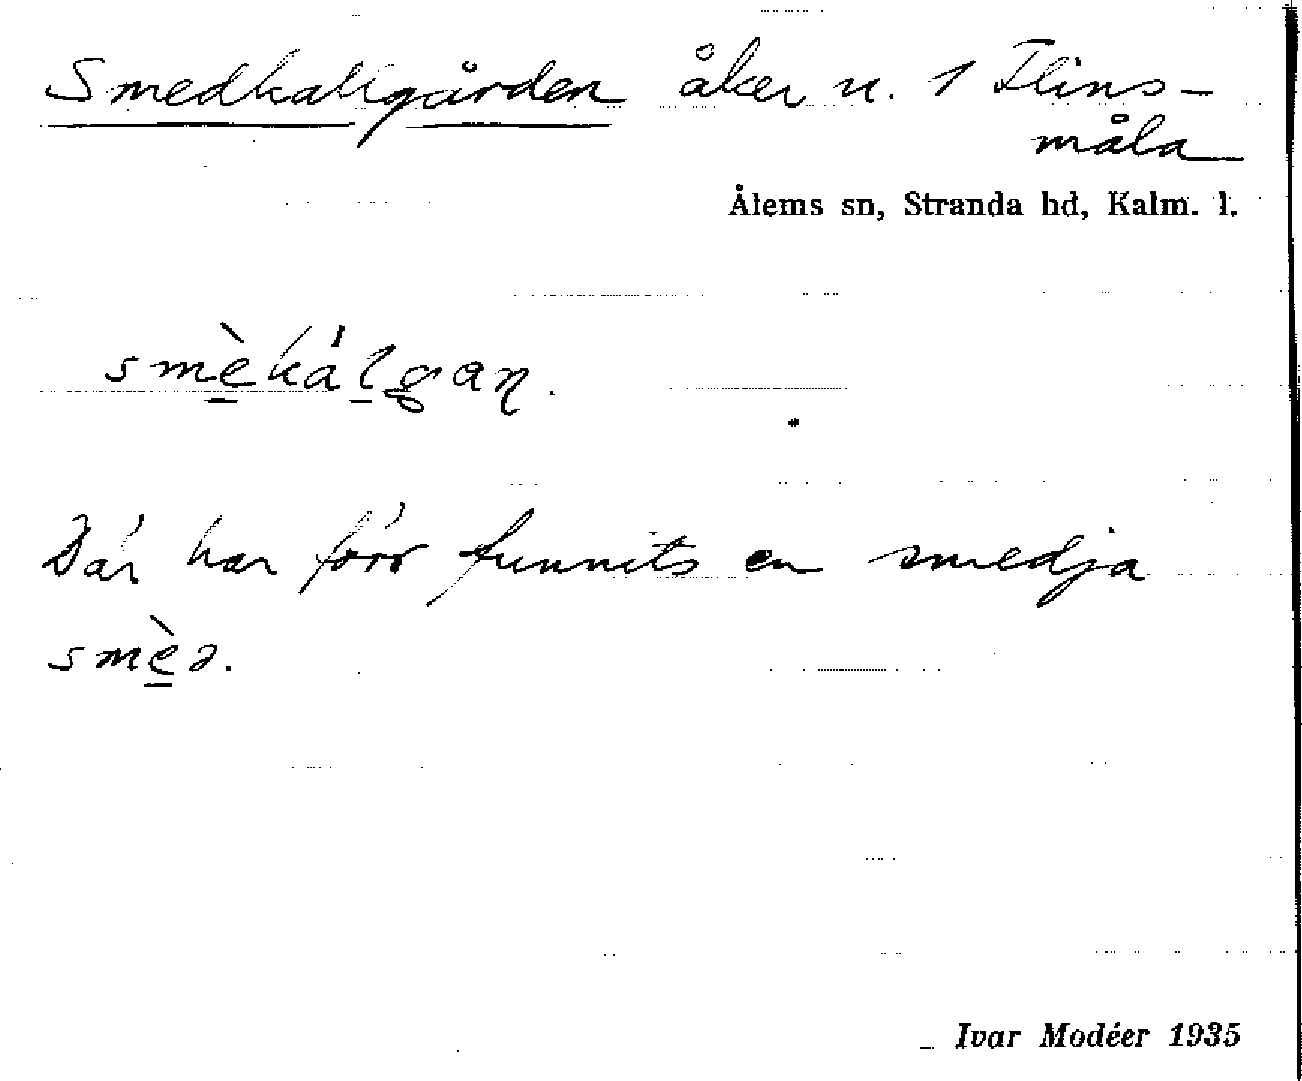 Smedkålgården åker n. 1 Flins-
måla
Ålems sn, Stranda hd, Kalm. l.
smè̱káḻgaɳ.
Där har förr funnits en smedja
smè̱ə.
Ivar Modéer 1935